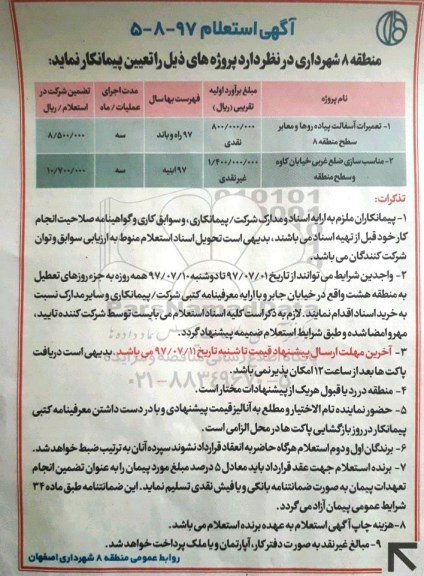 آگهی استعلام ۹۷-۸-۵
منطقه ۸ شهرداری در نظر دارد پروژه های ذیل را تعیین پیمانکار نماید:
نام پروژه
مبلغ برآورد اولیه تقریبی (ریال)
فهرست بها سال
مدت اجرای عملیات / ماه
تضمین شرکت در استعلام / ریال
۱- تعمیرات آسفالت پیاده روها و معابر سطح منطقه ۸
۸۰۰/۰۰۰/۰۰۰ نقدی
۹۷ راه و باند
سه
۸/۵۰۰/۰۰۰
۲- مناسب سازی ضلع غربی خیابان کاوه و سطح منطقه
۱/۴۰۰/۰۰۰/۰۰۰ غیر نقدی
۹۷ ابنیه
سه
۱۰/۷۰۰/۰۰۰
تذکرات:
۱- پیمانکاران ملزم به ارایه اسناد و مدارک شرکت/ پیمانکاری، و سوابق کاری و گواهینامه صلاحیت انجام
کار خود قبل از تهیه اسناد می باشند، بدیهی است تحویل اسناد استعلام منوط به ارزیابی سوابق و توان
شرکت کنندگان می باشد.
۲- واجدین شرایط می توانند از تاریخ ۹۷/۰۷/۰۱ تا دوشنبه ۹۷/۰۷/۱۰ همه روزه به جزء روزهای تعطیل
به منطقه هشت واقع در خیابان جابر و با ارایه معرفینامه کتبی شرکت/ پیمانکاری و سایر مدارک نسبت
به خرید اسناد اقدام نمایند. لازم به ذکر است کلیه اسناد استعلام می بایست توسط شرکت کننده تایید،
مهر و امضا شده و طبق شرایط استعلام ضمیمه پیشنهاد گردد.
۳- آخرین مهلت ارسال پیشنهاد قیمت تا شنبه تاریخ ۹۷/۰۷/۱۱ می باشد. بدیهی است دریافت
پاکت ها بعد از ساعت ۱۲ امکان پذیر نمی باشد.
۴- منطقه در رد یا قبول هر یک از پیشنهادات مختار است.
۵- حضور نماینده تام الاختیار و مطلع به آنالیز قیمت پیشنهادی و با در دست داشتن معرفینامه کتبی
پیمانکار در روز بازگشایی پاکت ها در محل الزامی است.
۶- برندگان اول و دوم استعلام هرگاه حاضر به انعقاد قرارداد نشوند سپرده آنان به ترتیب ضبط خواهد شد.
۷- برنده استعلام جهت عقد قرارداد باید معادل ۵ درصد مبلغ مورد پیمان را به عنوان تضمین انجام
تعهدات پیمان به صورت ضمانتنامه بانکی و یا فیش نقدی تسلیم نماید. این ضمانتنامه طبق ماده ۳۴
شرایط عمومی پیمان آزاد می گردد.
۸- هزینه چاپ آگهی استعلام به عهده برنده استعلام می باشد.
۹- مبالغ غیر نقد به صورت دفتر کار، آپارتمان و یا ملک پرداخت خواهد شد.
روابط عمومی منطقه ۸ شهرداری اصفهان